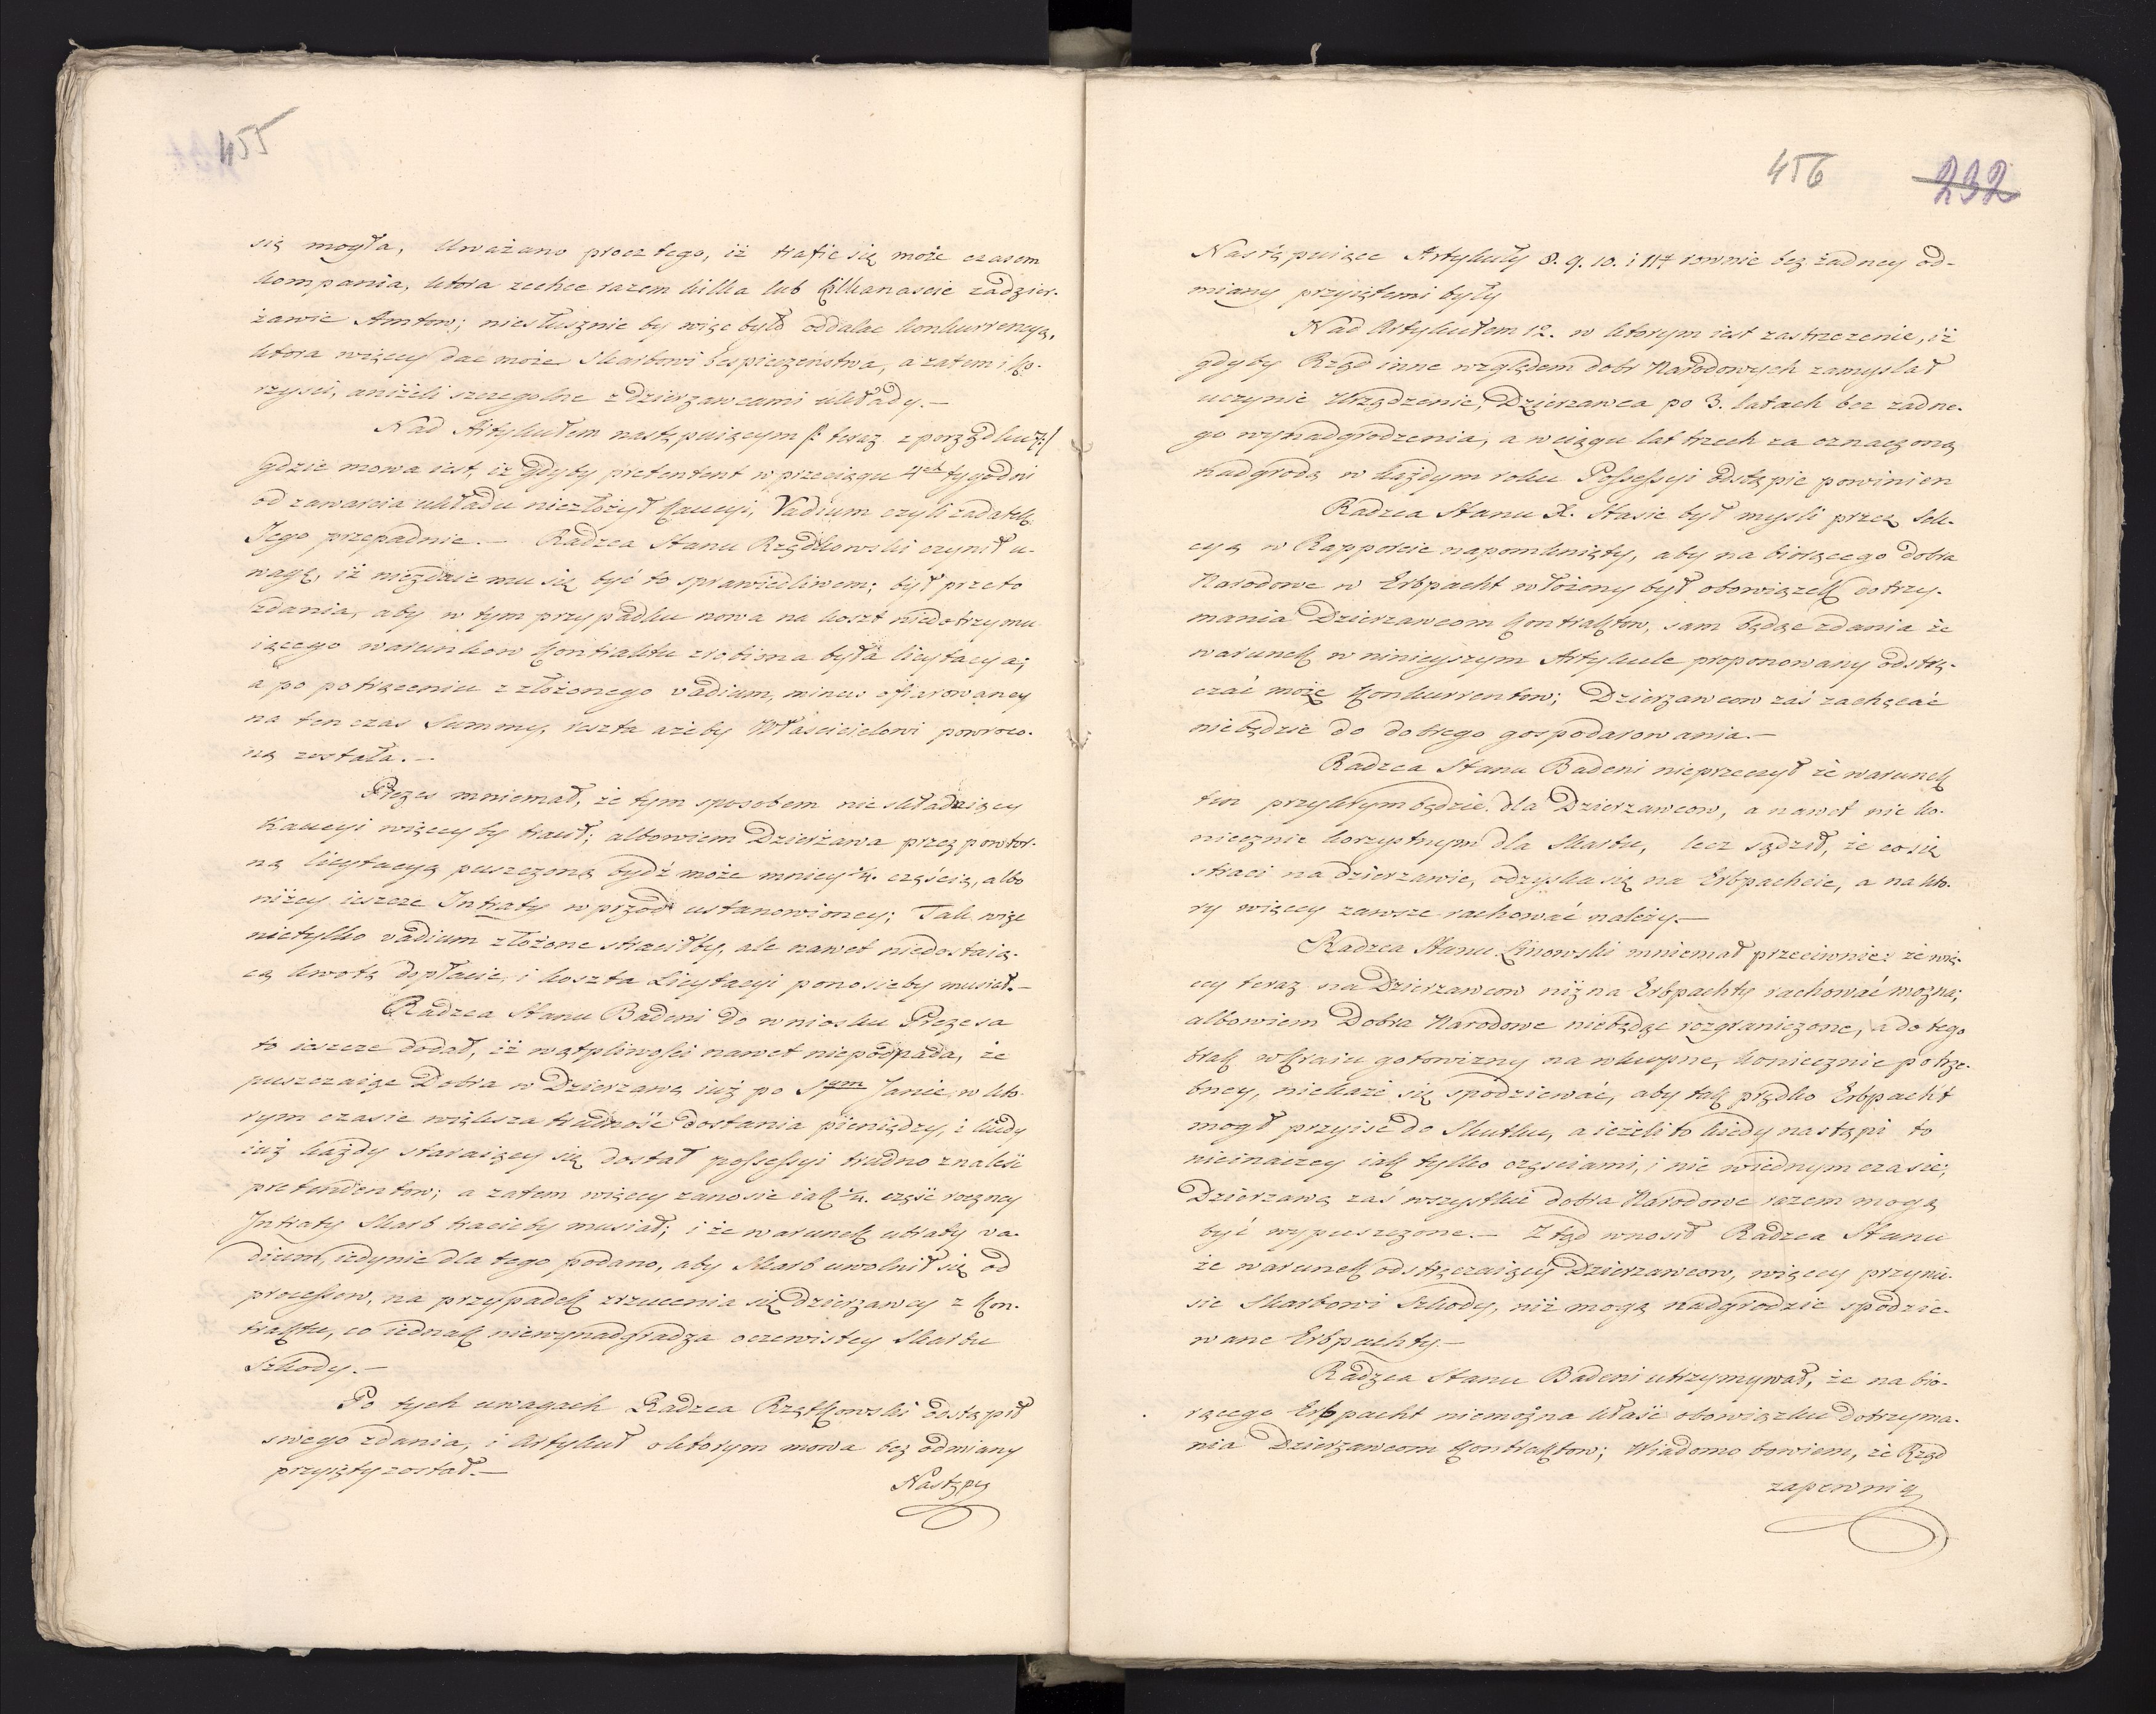 455
się mogła, Uważano procz tego, iż trafić się może czasem
kompania, ktora zechce razem kilka lub kilkanascie zadzier-
żawić Amtow; niesłusznie by więc było oddalać konkurrencyą,
ktora więcey dać może Skarbowi bespieczeństwa, a zatem i ko-
rzysci, aniżeli szczegolne z dzierzawcami układy.—
Nad Artykułem następuiącym /: teraz z porządku 7:/
gdzie mowa iest, iż gdyby pretentent w przeciągu 4ch tygodni
od zawarcia układu niezłożył kaucyi, Vadium czyli zadatek
Jego przepadnie.— Radzca Stanu Rządkowski czynił u-
wagę, iż niezdaie mu się być to sprawiedliwem; był przeto
zdania, aby w tym przypadku nowa na koszt niedotrzymu
iącego warunkow kontraktu zrobiona była licytacya;
a po potrąceniu z złożonego vadium, minus ofiarowaney
na ten czas Summy, reszta ażeby Właścicielowi powroco-
ną została.—
Prezes mniemał, że tym sposobem nieskładaiący
Kaucyi więcey by tracił; albowiem Dzierżawa przez powtor-
ną licytacyą puszczoną bydź może mniey ¼. częścią, albo
niżey ieszcze Intraty wprzód ustanowioney; Tak więc
nietylko vadium złożone straciłby, ale nawet niedostaią-
cą kwotę dopłacić, i koszta Licytacyi ponosićby musiał.—
Radzca Stanu Badeni do wniosku Prezesa
to ieszcze dodał, iż wątpliwości nawet niepodpada, że
puszczaiąc Dobra w Dzierzawę iuż po Sym Janie, w kto-
rym czasie większa trudność dostania pieniędzy, i kiedy
iuż każdy staraiący się dostał possessyi trudno znaleść
pretendentow; a zatem więcey zanosić iak ¼. część roczney
Intraty Skarb tracićby musiał; i że warunek utraty va-
dium, iedynie dla tego podano, aby Skarb uwolnił się od
processow, na przypadek zrzucenia się dzierzawcy z kon-
traktu, co iednak niewynadgradza oczewistey Skarbu
Szkody.—
Po tych uwagach Radzca Rządkowski odstąpił
swego zdania, i Artykuł o ktorym mowa bez odmiany
przyięty został.—
Następu
456 232
Następuiące Artykuły 8. 9. 10. i 11ty rownie bez żadney od-
miany przyiętemi były
Nad Artykułem 12. w ktorym iest zastrzezenie, iż
gdyby Rząd inne względem dobr Narodowych zamyslał
uczynić Urządzenie, Dzierzawca po 3. latach bez zadne-
go wynadgrodzenia, a wciągu lat trzech za oznaczoną
nadgrodą w każdym roku Possessyi odstąpić powinien
Radzca Stanu X. Stasic był mysli przez Sek-
cyą w Rapporcie napomkniętey, aby na biorącego dobra
Narodowe w Erbpacht włożony był obowiązek dotrzy-
mania Dzierzawcom kontraktow, sam będąc zdania że
warunek w ninieyszym Artykule proponowany odstrę-
czać może konkurrentow; Dzierzawcow zaś zachęcać
niebędzie do dobrego gospodarowania.—
Radzca Stanu Badeni nieprzeczył że warunek
ten przykrym będzie dla Dzierzawcow, a nawet nie ko-
niecznie korzystnym dla Skarbu, lecz sądził, że co się
straci na dzierzawie, odzyska się na Erbpachcie, a na kto-
ry więcey zawsze rachować należy.—
Radzca Stanu Linowski mniemał przeciwnie: że wię-
cey teraz na Dzierzawcow niż na Erbpachty rachować mozna;
albowiem Dobra Narodowe niebędąc rozgraniczone, a do tego
brak w Kraiu gotowizny na wkupne, koniecznie potrze-
bney, niekaże się spodziewać, aby tak prędko Erbpacht
mogł przyiść do Skutku, a ieżeli to kiedy nastąpi to
nieinaczey iak tylko częściami, i nie wiednym czasie;
Dzierzawą zaś wszystkie dobra Narodowe razem mogą
być wypuszczone.— Ztąd wnosił Radzca Stanu
że warunek odstręczaiący Dzierzawcow, więcey przynie-
sie Skarbowi Szkody, niż mogą nadgrodzić spodzie-
wane Erbpachty.—
Radzca Stanu Badeni utrzymywał, że na bio-
rącego Erbpacht niemożna kłaść obowiązku dotrzyma-
nia Dzierzawcom kontraktow; Wiadomo bowiem, że Rząd
zapewnia